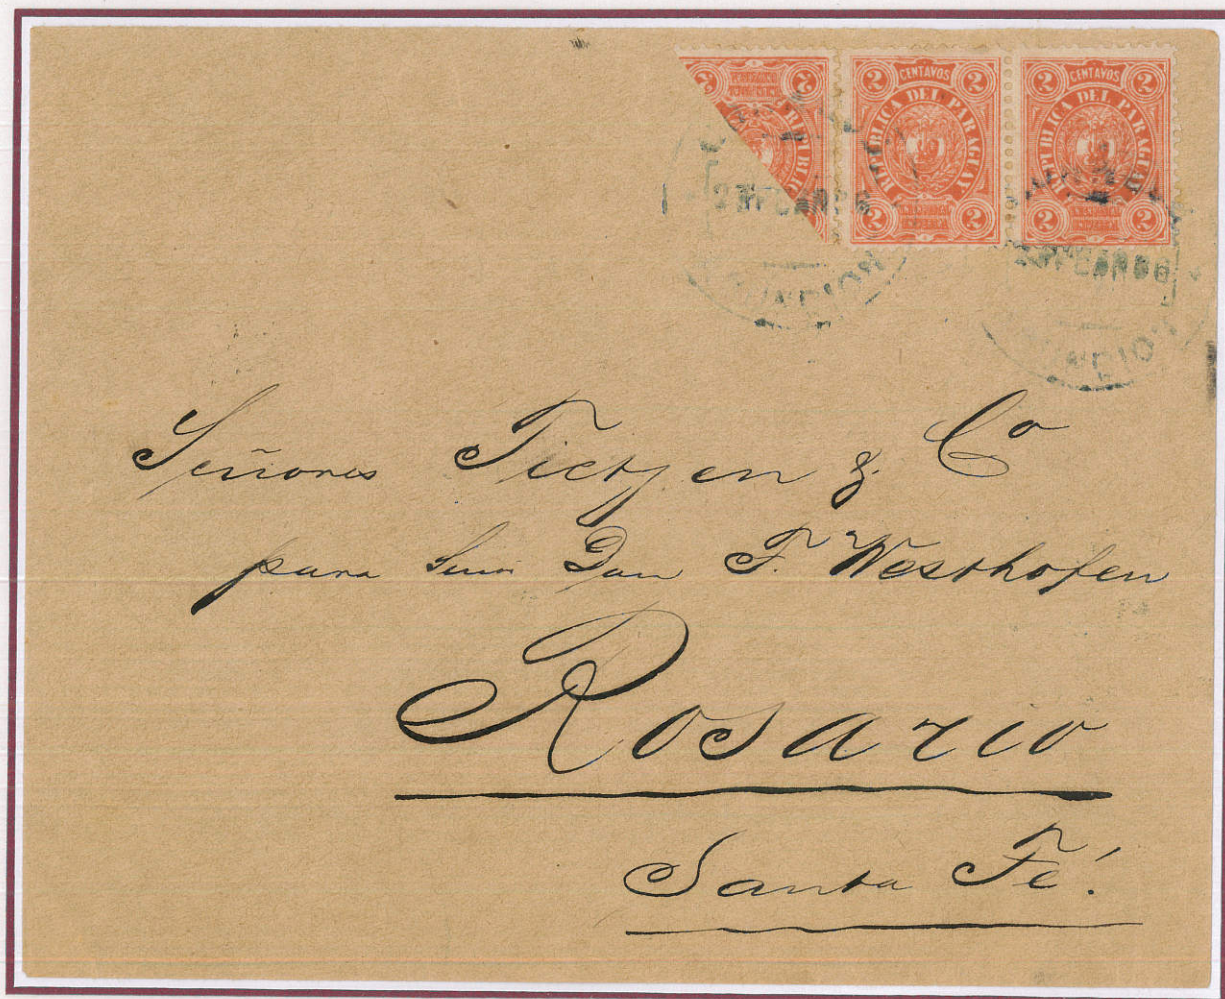 2 CENTAVOS 2
REPUBLICA DEL PARAGUAY
2 2
2 CENTAVOS 2
REPUBLICA DEL PARAGUAY
2 2
Señores Tietjen & Co
para Don F. Westhofen
Rosario
Santa Fé.